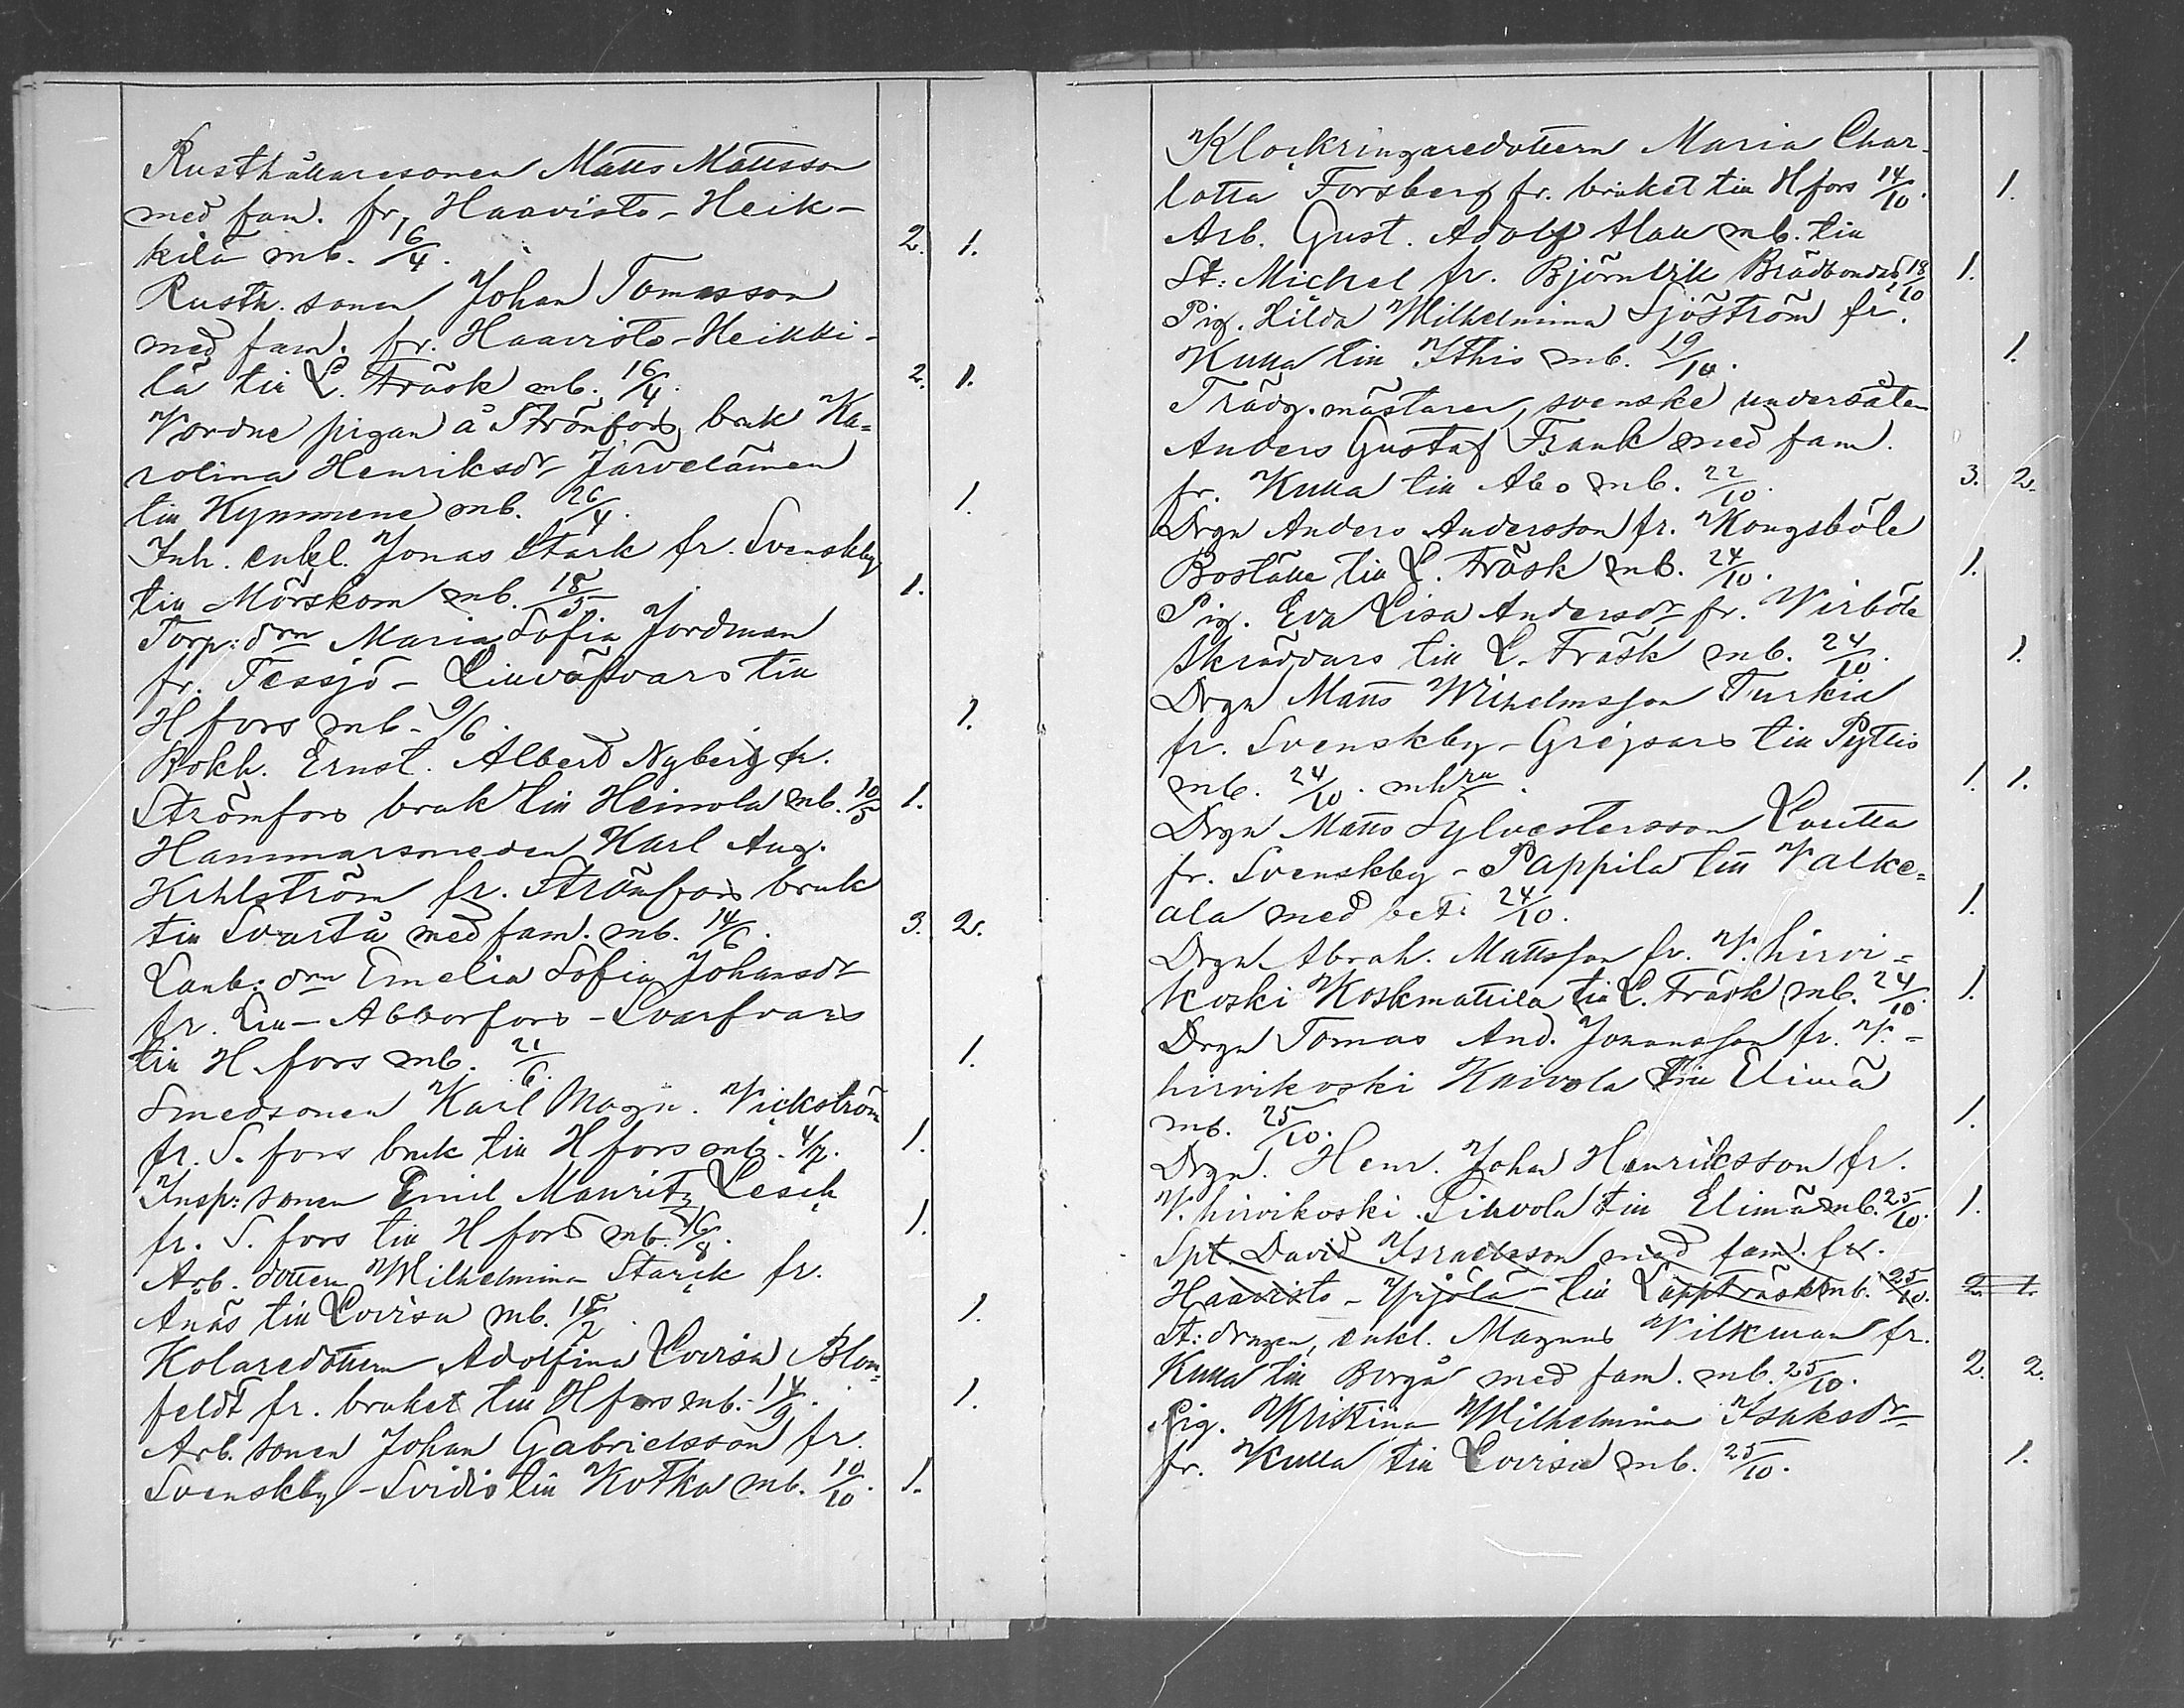 Rusthållaresonen Matts Mattsson
med fam. fr. Haavisto-Heik-
kilä mb. 16/4. 2. 1.
Rusth. sonen Johan Tomasson
med fam. fr. Haavisto-Heikki-
lä till L. Träsk mb. 16/4. 2. 1.
Vordne pigan å Strömfors bruk Ka-
rolina Henriksdr Järveläinen
till Kymmene mb. 26/4. 1.
Inh. enkl. Jonas Stark fr. Svenskby
till Mörskom mb. 18/5 1.
Torp: drn Maria Sofia Jordman
fr. Tessjö- Linväfvars till
H fors mb. 9/6. 1.
Bokh. Ernst. Albert Nyberg fr.
Strömfors bruk till Heinola mb. 10/5 1.
Hammarsmeden Karl Aug.
Kihlström fr. Strömfors bruk
till Svartå med fam. mb. 14/6. 3. 2.
Lanb: drn Emelia Sofia Johansdr
fr. Lill-Abborfors-Svarfvars
till H. fors mb. 21/6. 1.
Smedsonen Karl Magn. Vickström
fr. S. fors bruk till H fors mb. 4/7. 1.
Insp: sonen Emil Mauritz Lesch
fr. S. fors till H fors mb. 16/8. 1.
Arb. dottern Wilhelmina Starck fr.
Anäs till Lovisa mb. 1.
Kolaredottern Adolfina Lovisa Blom-
feldt fr. bruket till H fors mb. 14/9. 1.
Arb. sonen Johan Gabrielsson fr.
Svenskby-Svidis till Kotka mb. 10/10. 1.
Klockringaredottern Maria Char-
lotta Forsberg fr. bruket till H fors 14/10. 1.
Arb. Gust. Adolf Hall mb. till
St: Michel fr. Björnvik Brädbondas 18/10 1.
Pig. Hilda Wilhelmina Sjöström fr.
Kulla till Ithis mb. 19/10. 1.
Trädg. mästaren, svenske undersåten
Anders Gustaf Frank med fam.
fr. Kulla till Abo mb. 22/10. 3. 2.
Drgn Anders Andersson fr. Kongsböle
Boställe till L. Träsk mb. 24/10. 1.
Pig. Eva Lisa Andersdr fr. Virböle
Skräddars till L. Träsk mb. 24/10. 1.
Drgn Matts Wilhelmsson Turkia
fr. Svenskby-Grejsars till Pyttis
mb. 24/10. mhru. 1. 1.
Drgn Matts Sylvestersson
fr. Svenskby-Pappila till Valke-
ala med bet. 24/10. 1.
Drgn Abrah. Mattsson fr. V. hirvi-
koski Koskmattila till L. Träsk mb. 24/10. 1.
Drgn Tomas And. Johansson fr. V.-
hirvikoski Kaivola till Elimä
mb. 25/10. 1.
Drgn. Henr. Johan Henriksson fr.
V. hirvikoski Sihvola till Elimä mb. 25/10. 1.
Spt. David Israelsson med fam. fr.
Haavisto-Yrjölä till Lappträsk mb. 25/10. 2. 1.
St: drngen, enkl. Magnus Vilkman fr.
Kulla till Borgå med fam. mb. 25/10. 2. 2.
Pig. Kristina Wilhelmina Isaksdr
fr. Kulla till Lovisa mb. 25/10. 1.